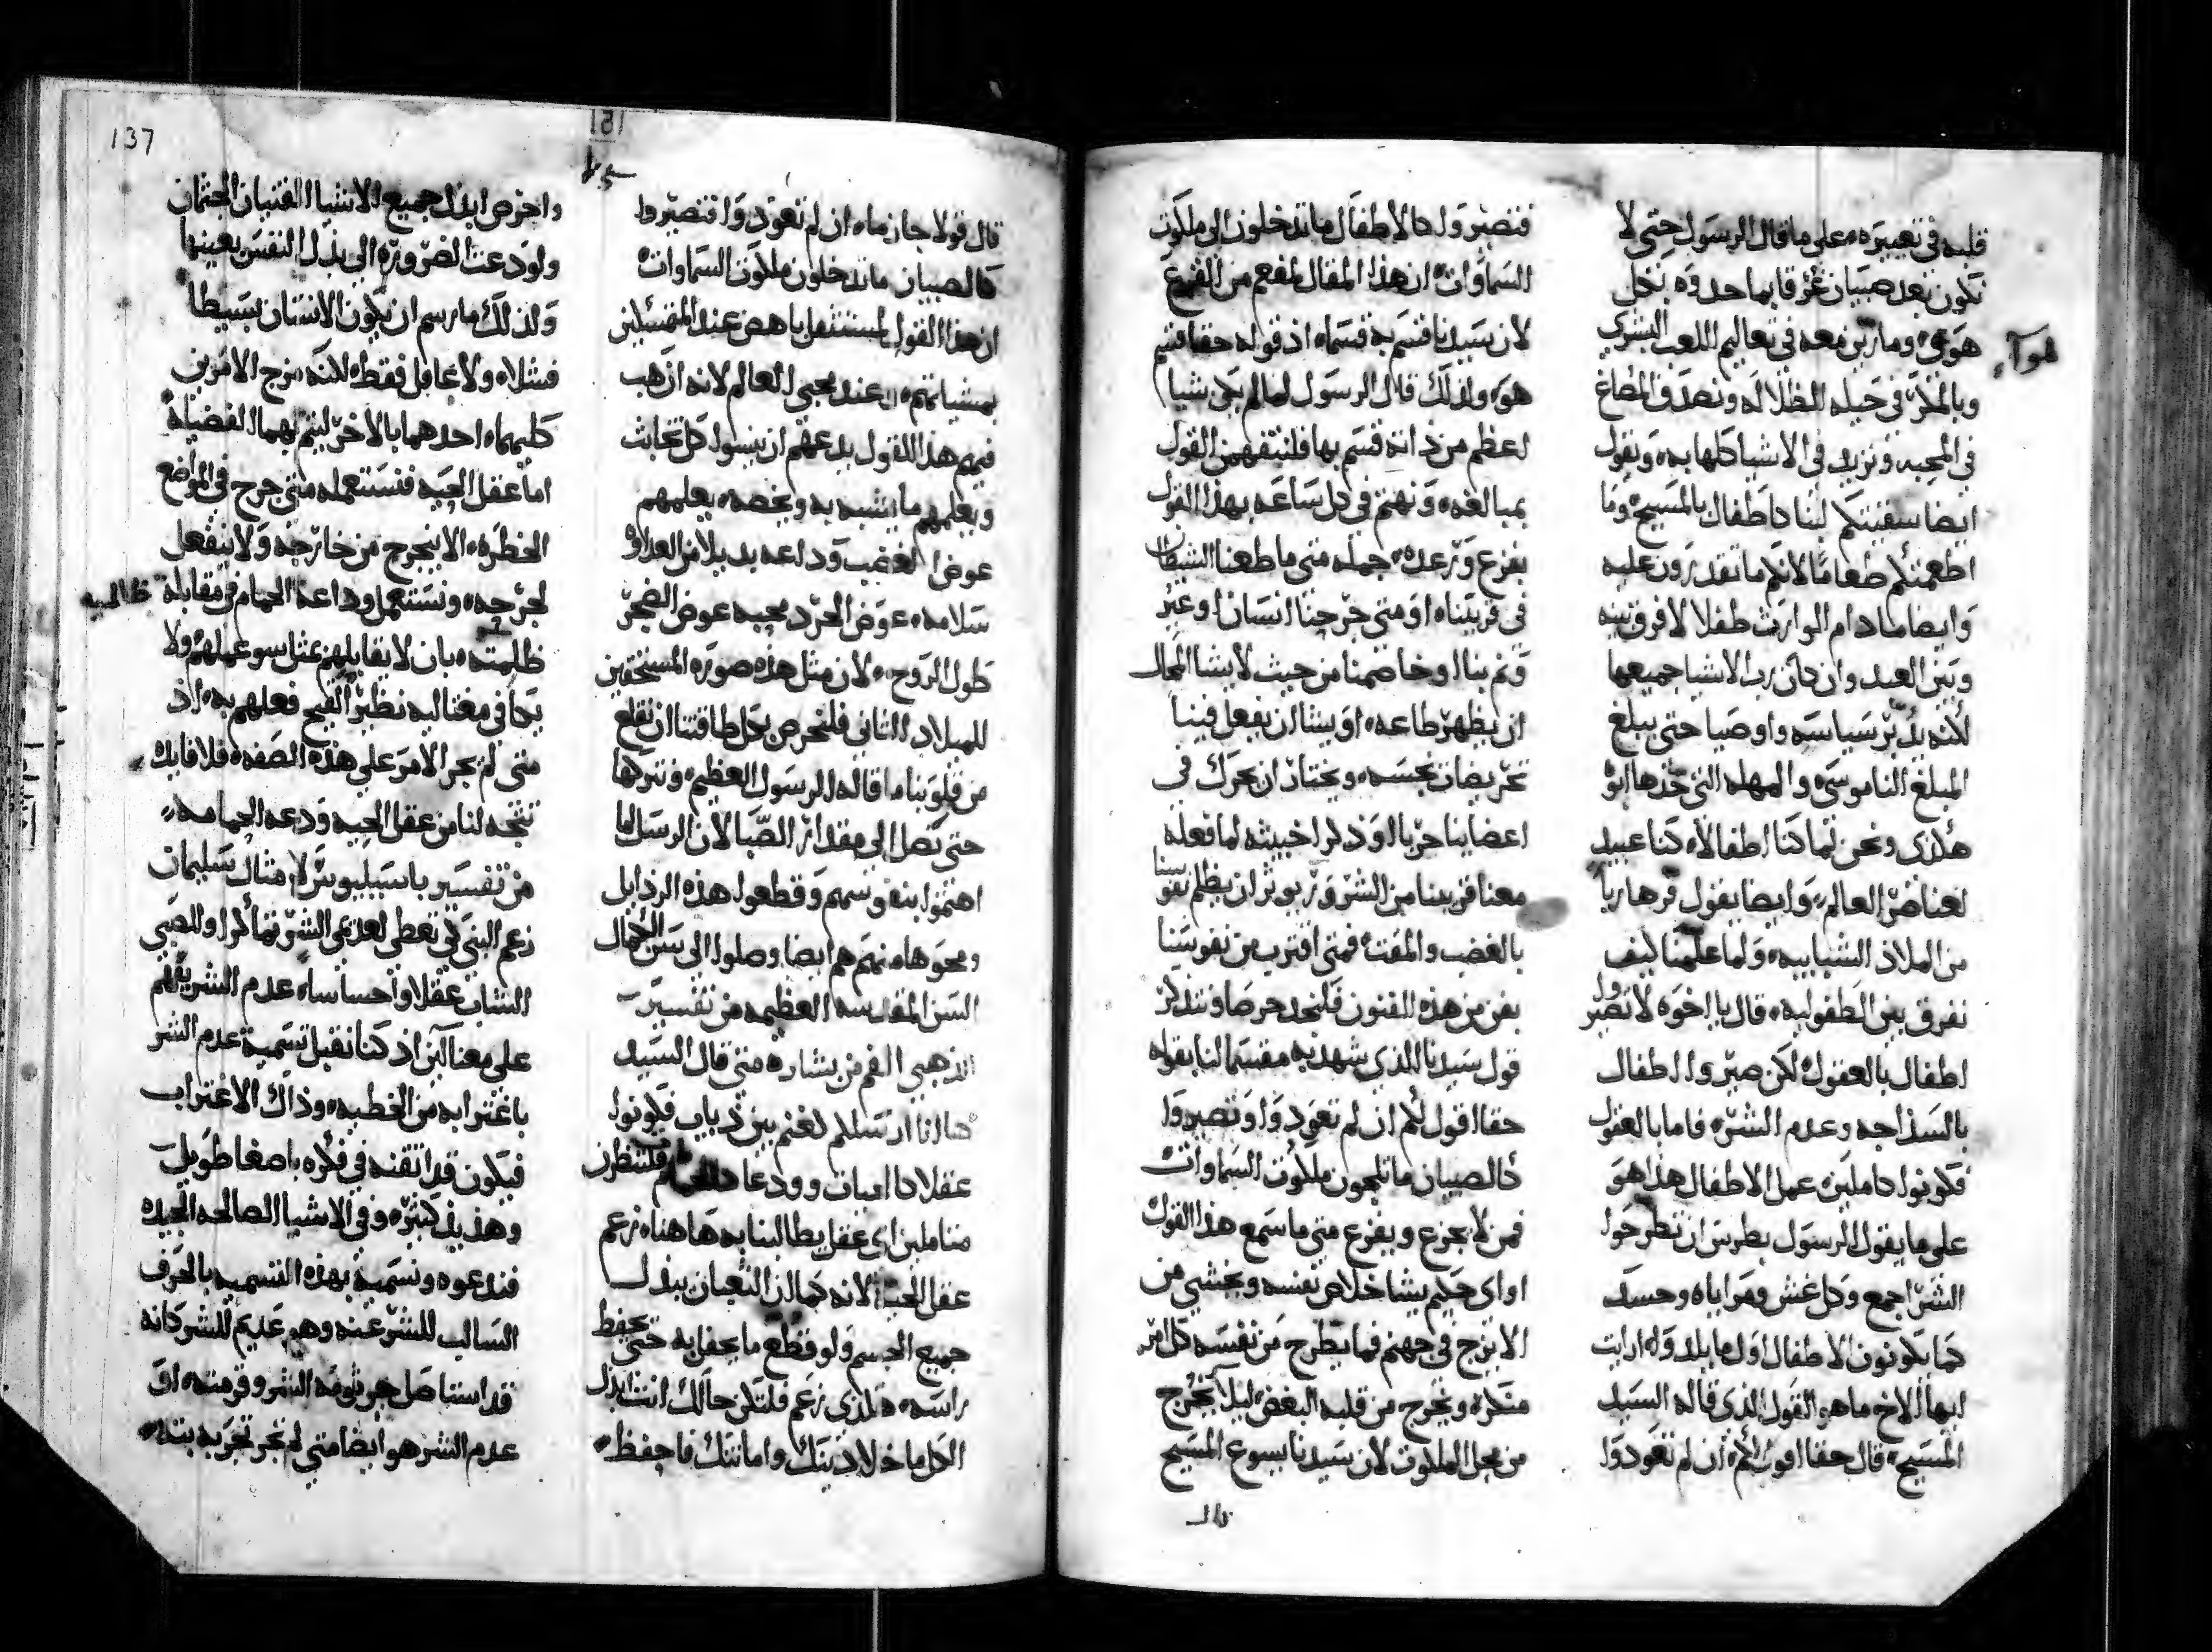 قلبه في تعبيره، على ما قال الرسول حتى لا
نكون بعد صبيان غرقا بما حدوه بكل
هوآء
هوى، وما رتبن معه في تعاليم اللعب البشري
وبالمكر في حيله الظلاله ونصدق المصاغ
في المحبه ونزيد في الاشيا كلها به، ويقول
ايضا سقيتكم لبنا كاطفال بالمسيح، وما
اطعمتكم طعامًا لانكم ما تقدرون عليه
وايضا ما دام الوارث طفلا لا فرق بينه
وبين العبد وان كان رب الاشيا جميعها
لكنه يدبر سياسه واوصيا حتى يبلغ
المبلغ الناموسى والمهله التي حدها ابوه
هكذى ونحن لما كنا اطفالاً، كنا عبيد
لعناصر العالم، وايضا يقول فر هاربا
من الملاذ الشبابيه، ولما علمنا كيف
نفرق بين الطفوليه، قال يا اخوه لا تصيروا
اطفال بالعقول لكن صيروا اطفال
بالسذاجه وعدم الشر، فاما بالعقول
فكونوا كاملين، عمل الاطفال هذا هو
على ما يقول الرسول بطرس ان تطرحوا
الشر اجمع وكل غش ومراياه وحسد
كما يكونون الاطفال اول ما يلدوا، ارايت
ايها الاخ ما هو القول الذي قاله السيد
المسيح، قال حقا اقول لكم، ان لم تعودوا
فتصيروا كالاطفال ما تدخلون الى ملكوت
السماوات، ان هذا المقال لمفعم من الفزع
لان سيدنا قسم به قسماً، اذ قوله حقا قسم
هو، ولذلك قال الرسول لما لم يكن شيا
اعظم من ذاته قسم بها فلنتفهمن القول
بمبالغه، ونهتم في كل ساعه بهذا القول
بفزع ورعده، جمله متى ما طغنا الشيطان
في قريتنا، او متى جرحنا انسان او عبر
وتم بنا او خاصمنا من حيث لا يشا المحال
ان يظهر طاعه، او يشا ان يفعل فينا
تحريضات نجسه، ويختار ان يحرك في
اعضاينا حربا او ذكرا خبيثه لما فعله
معنا قريبنا من الشر ويريد ان يظلم نفوسنا
بالغضب والمقت، فمتى اقترب من نفوسنا
بفن من هذه الفنون فلنجد حرصا ونتذكر
قول سيدنا الذي شهد به مقسما لنا بقوله
حقا اقول لكم ان لم تعودوا وتصيروا
كالصبيان ما تلجون ملكوت السماوات
فمن لا يجزع ويفزع متى ما سمع هذا القول
او اى حكيم يشا خلاص نفسه ويخشي من
الا يزج في جهنم فما يطرح من نفسه كل امر
منكره ويخرج من قلبه البغض ليلا يخرج
من محل الملكوت لان سيدنا يسوع المسيح
قال
137
151
قال قولا جازما، ان لم تعودوا فتصيروا
كالصبيان ما تدخلون ملكوت السماوات
ان هذا القول لمستثقل باهض عند المتمسكين
بمشياتهم، عند محبي العالم لانه ازهب
فيهم هذا القول يدعهم ان ينسوا كل تخابث
ويعلمهم ما يشبه به ويخصه، يعلمهم
عوض الغضب وداعه بديلا من العداوه
سلامه، عوض الحرد محبه عوض الضجر
طول الروح، لان مثل هذه صوره المستحقين
للميلاد الثاني فلنحرص بكل طاقتنا ان نقلع
من قلوبنا ما قاله الرسول العظيم، ونتركها
حتى نصل الى مقدار الصبا لان الرسل لما
اهتموا بنفوسهم وقطعوا هذه الرذايل
ومحوها منهم هم ايضا وصلوا الى سن الكمال
السن المقدسه العظيمه من تفسير
الذهبي الفم من بشاره متى قال السيد
هاانا ارسلكم كغنم بين ذياب فكونوا
عقلا كالحيات وودعا كالحمام فلننظرن
متاملين اى عقل يطالبنا به هاهنا، زعم
عقل الحيه لانه كما ان الثعبان يبذل
جميع الجسم ولو قطع ما يحفل به حتى يحفظ
راسه، هكذى زعم فلتكن حالك انت ابذل
الكل ما خلا دينك وامانتك فاحفظ،
واحرص ابذل جميع الاشيا القنيان الجثمان
ولو دعت الضروره الى بذل النفس بعينها
ولذلك ما رسم ان يكون الانسان بسيطا
فشلا، ولا غافل فقط، لكنه مزج الامرين
كليهما، احدهما بالاخر ليتم بهما الفضيله
اما عقل الحيه فنستعمله متى جرح في المواضع
الخطره، الا ينجرح من خارجه ولا ينفعل
لجرحه، ونستعمل وداعه الحمام في مقابلة
ظالميه
ظالميه، بان لا يقابلهم بمثل سو عملهم، ولا
يكافي مغتاليه نظير القبيح فعلهم به، اذ
متى لم يجر الامر على هذه الصفه، فلا فايده
تتجه لنا من عقل الحيه ودعه الحمامه،
من تفسير باسيليوس لامثال سليمان
زعم النبي كي تعطى لعديمي الشر تماكرا والصبي
الشاب عقلا واحساسا، عدم الشر يفهم
على معنائين اذ كنا نقبل تسمية عدم الشر
باغترابه من الخطيه، وذاك الاغتراب
فيكون قد اتقنه في فكره باصغا طويل
وهذيذ كثير، وفي الاشيا الصالحه الجيده
فندعوه ونسميه بهذه التسميه بالحرف
السالب للشر عنه وهو عديم للشر كانه
قد استاصل جرثومة الشر وقرمته، او
عدم الشر هو ايضا متى لم نجر تجربه بته،